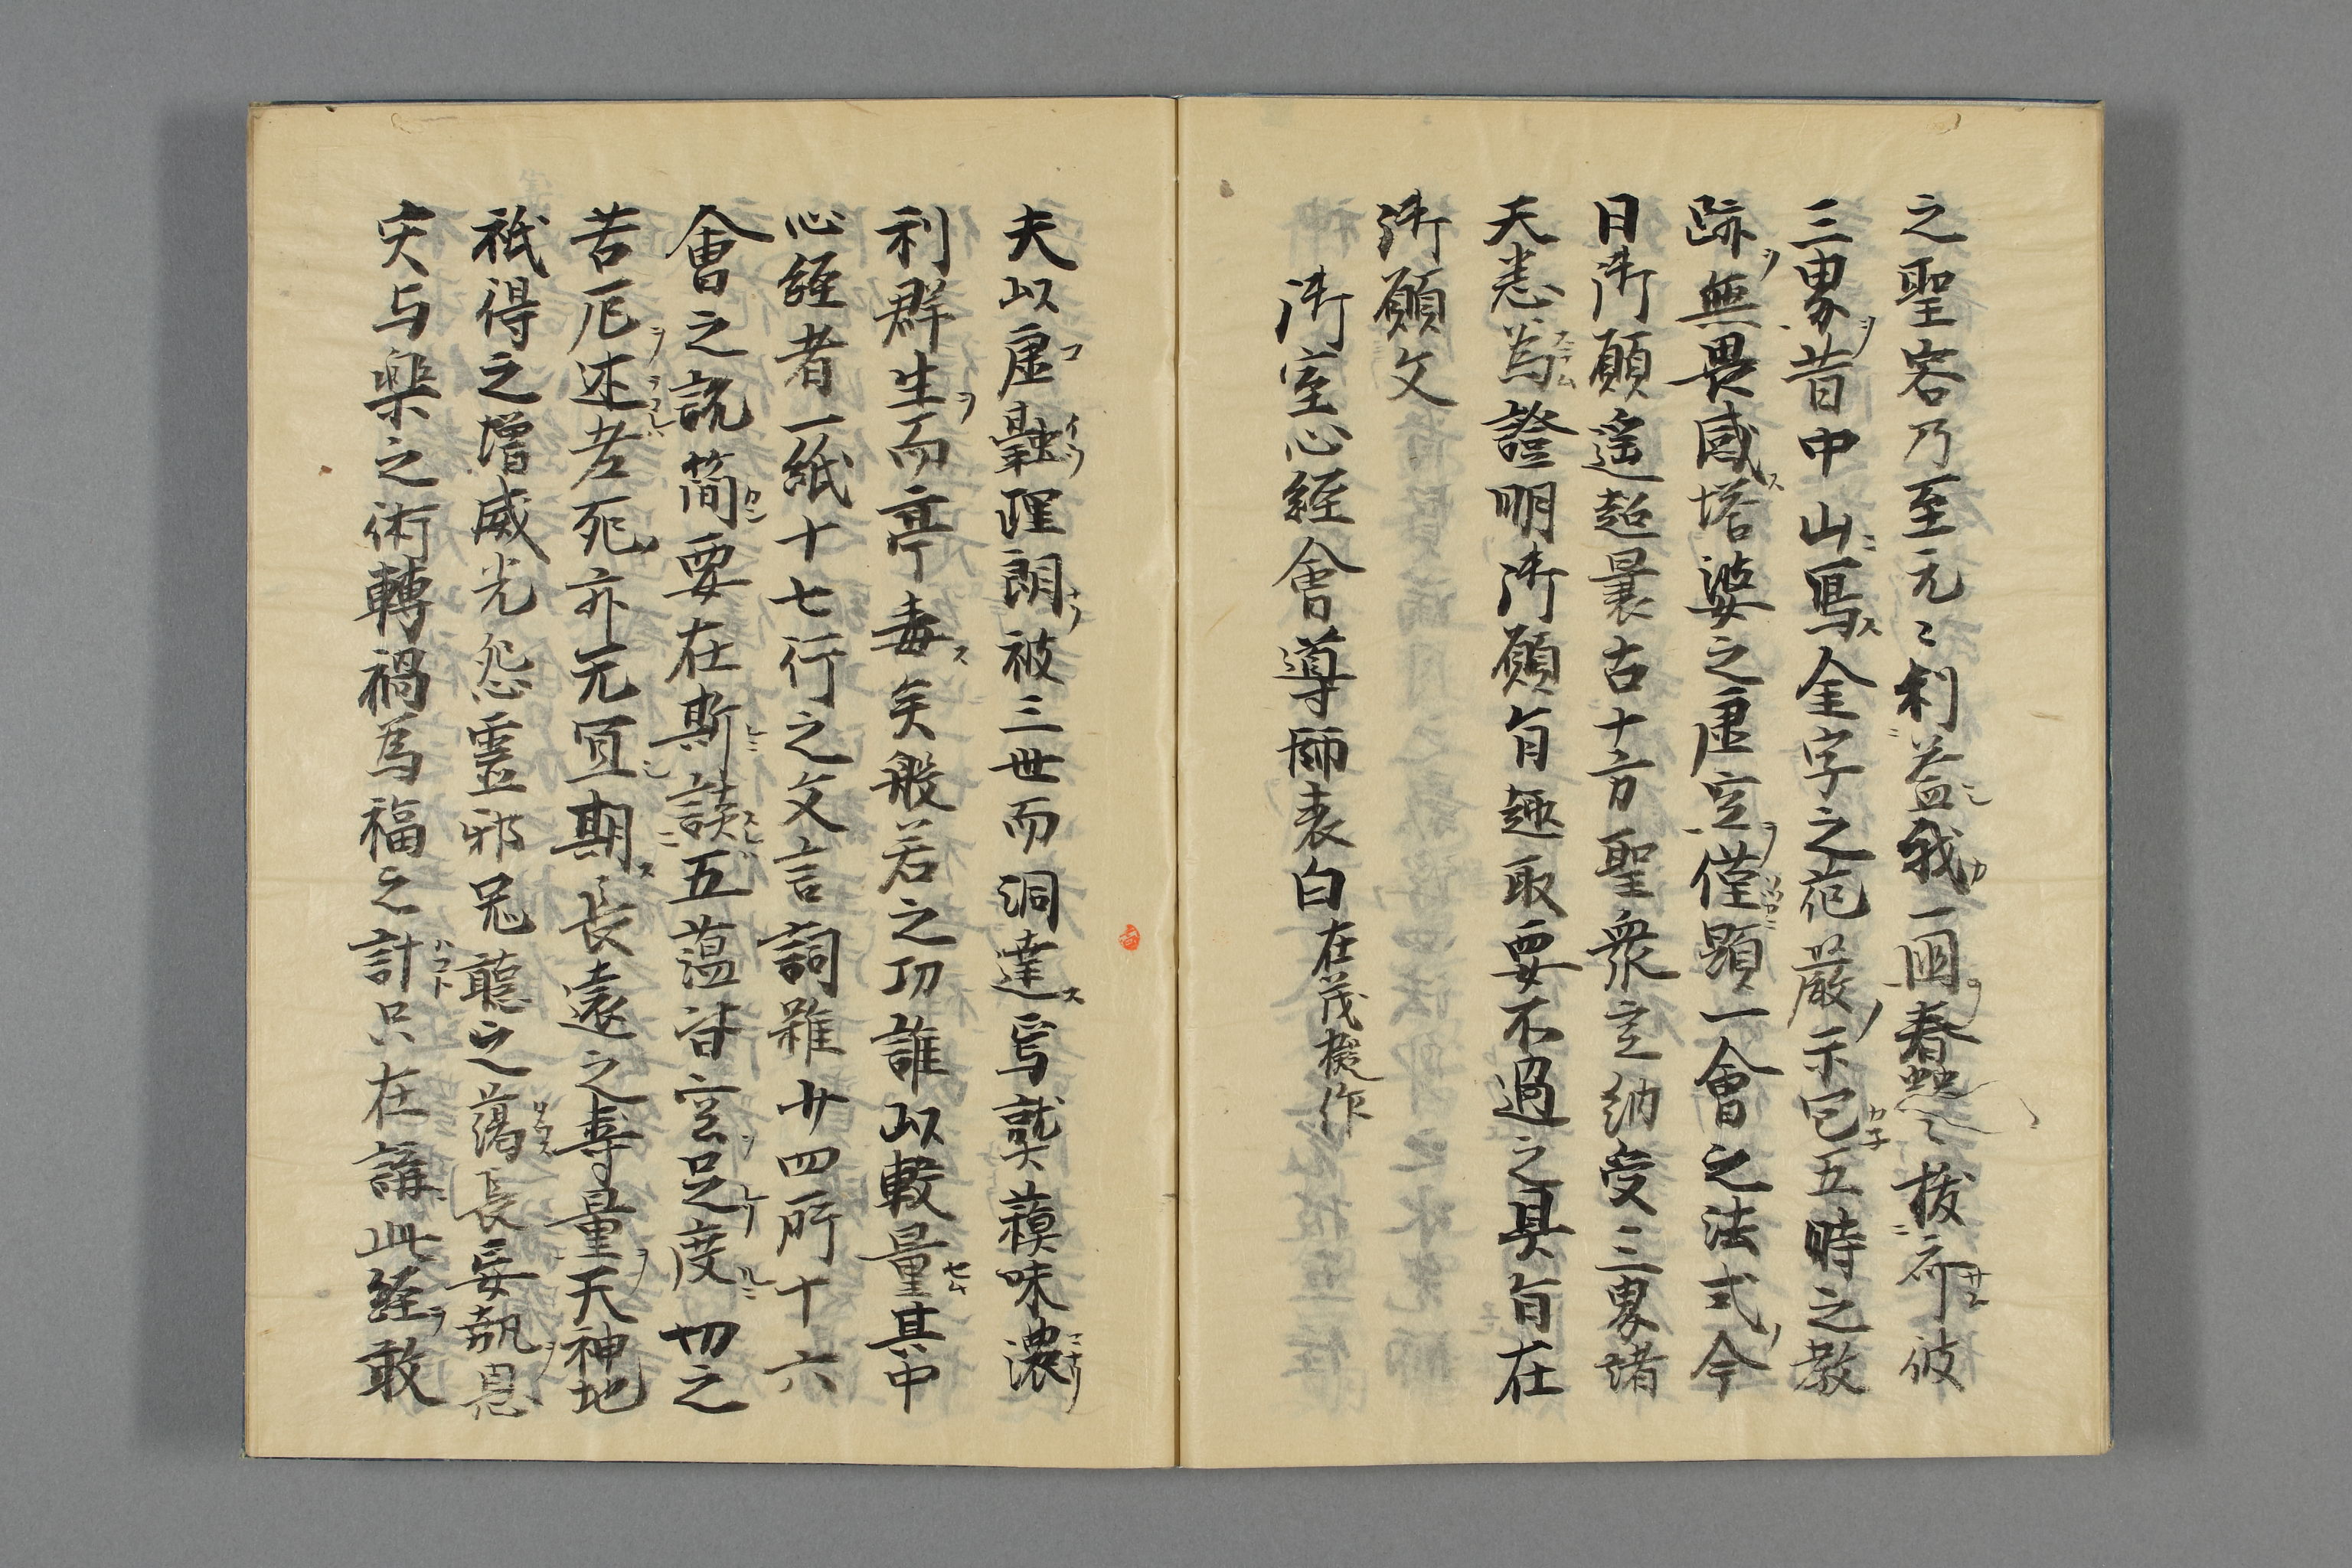 之聖容乃至元〻利益我一國春蝅〻拔済彼
三界昔中山寫金字之花嚴示它五時之教
跡無畏感塔婆之虚空僅顕一會之法式今
日御願遥超曩古十方聖衆定納受三界諸
天悉為證明御願旨趣取要不過之具旨在
御願文
御室心經會導師表白在茂擬作
夫以虚融理朗被三世而洞達焉就奘蘋味濃
利群生而亭毒矣般若之功誰以較量其中
心經者一紙十七行之文言詞雖廿四所十六
會之説簡要在斯談五蘊皆空是度一切之
苦厄述老死亦无宜期長遠之壽量天神地
祇得之增威光怨靈邪鬼聽之蕩長妄執息
灾与樂之術轉禍為福之計只在講此經敢